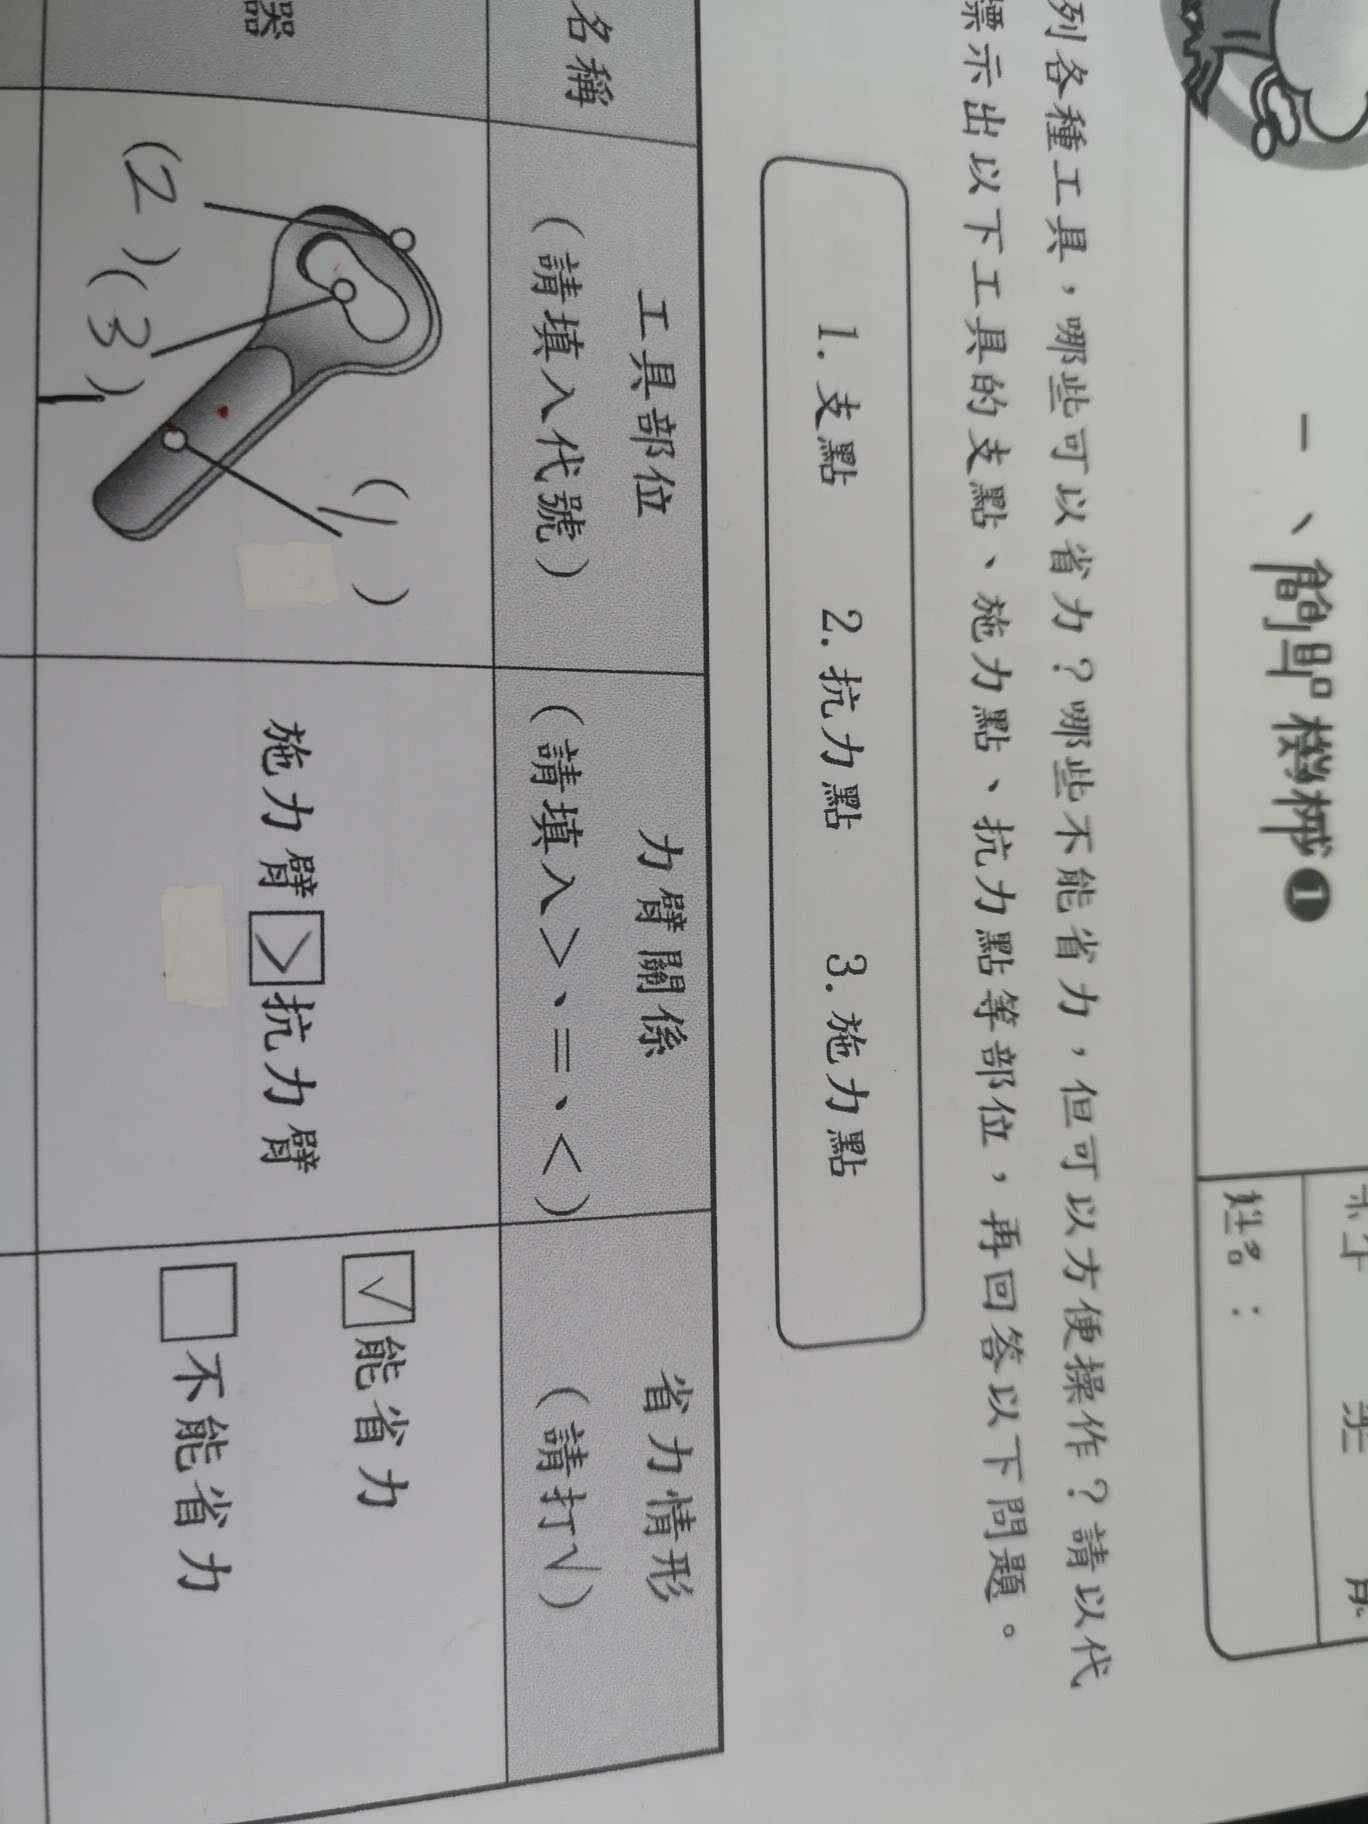 一、簡單機械❶
姓名：
列各種工具，哪些可以省力？哪些不能省力，但可以方便操作？請以代
標示出以下工具的支點、施力點、抗力點等部位，再回答以下問題。
1. 支點 2. 抗力點 3. 施力點
名稱
工具部位
（請填入代號）
力臂關係
（請填入＞、＝、＜）
省力情形
（請打√）
器
(2)
(3)
(1)
施力臂 > 抗力臂
√能省力
□不能省力